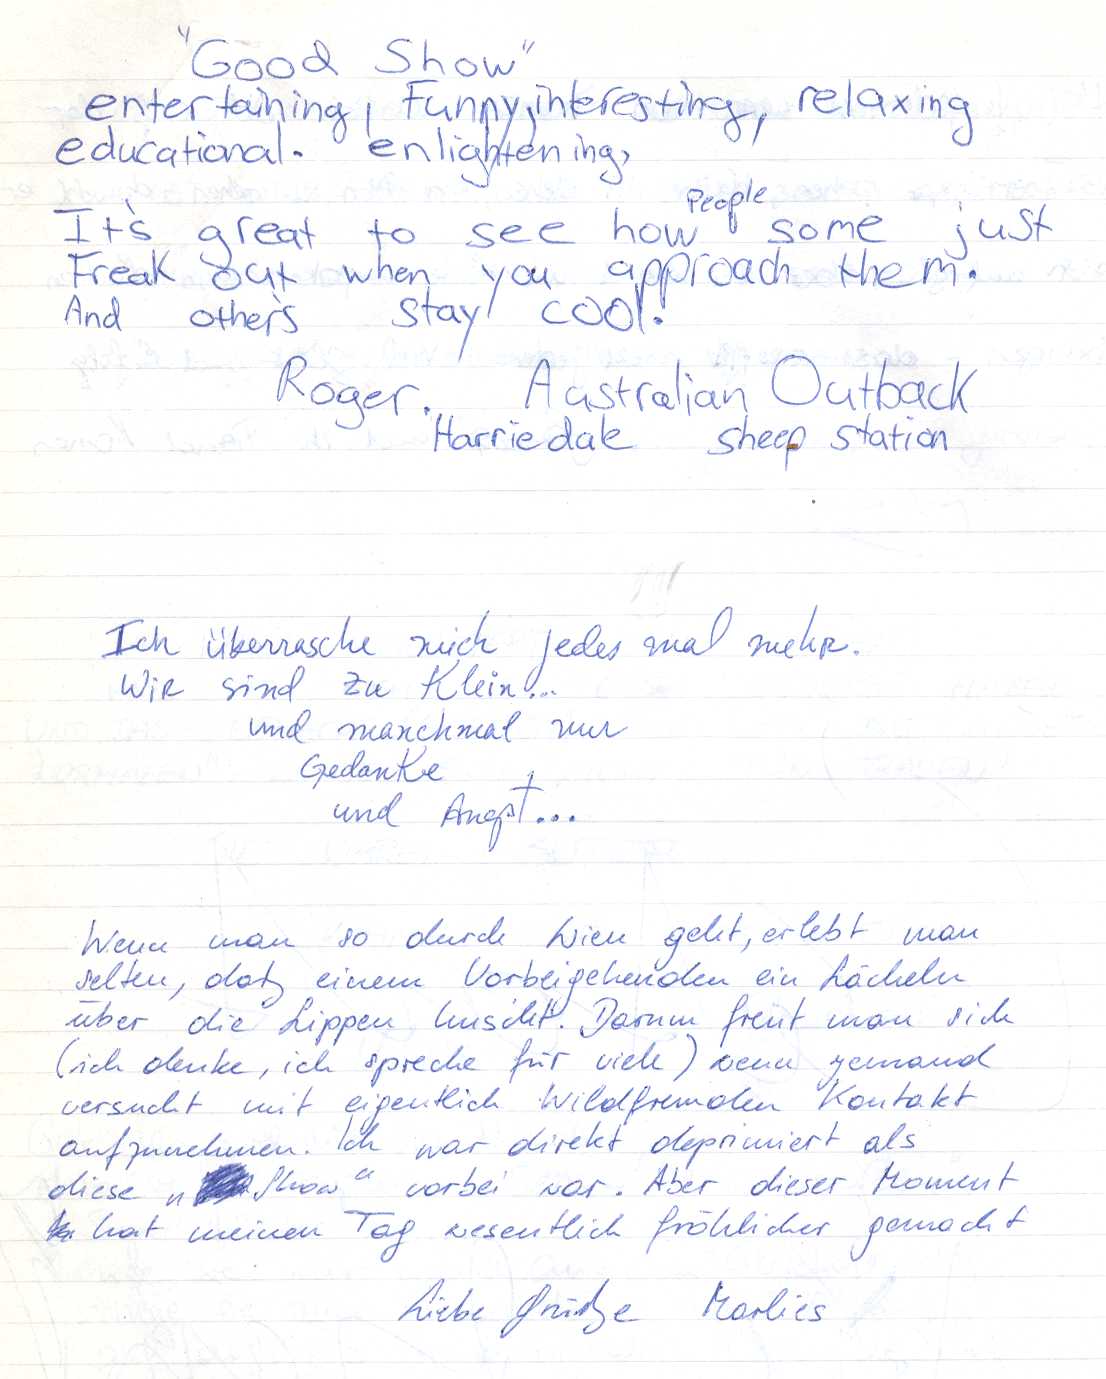 "Good Show"
entertaining, Funny, interesting, relaxing
educational. enlightening,
It's great to see how People some just
Freak out when you approach them.
And other's stay cool.
Roger. Australian Outback
Harriedale sheep station
Ich überrasche mich jedes mal mehr.
Wir sind zu Klein...
und manchmal nur
Gedanke
und Angst...
Wenn man so durch Wien geht, erlebt man
selten, daß einem Vorbeigehenden ein Lächeln
über die Lippen huscht. Darum freut man sich
(ich denke, ich spreche für viele) wenn jemand
versucht mit eigentlich Wildfremden Kontakt
aufzunehmen. Ich war direkt deprimiert als
diese „Show" vorbei war. Aber dieser Moment
hat meinen Tag wesentlich fröhlicher gemacht
Liebe Grüße Marlies